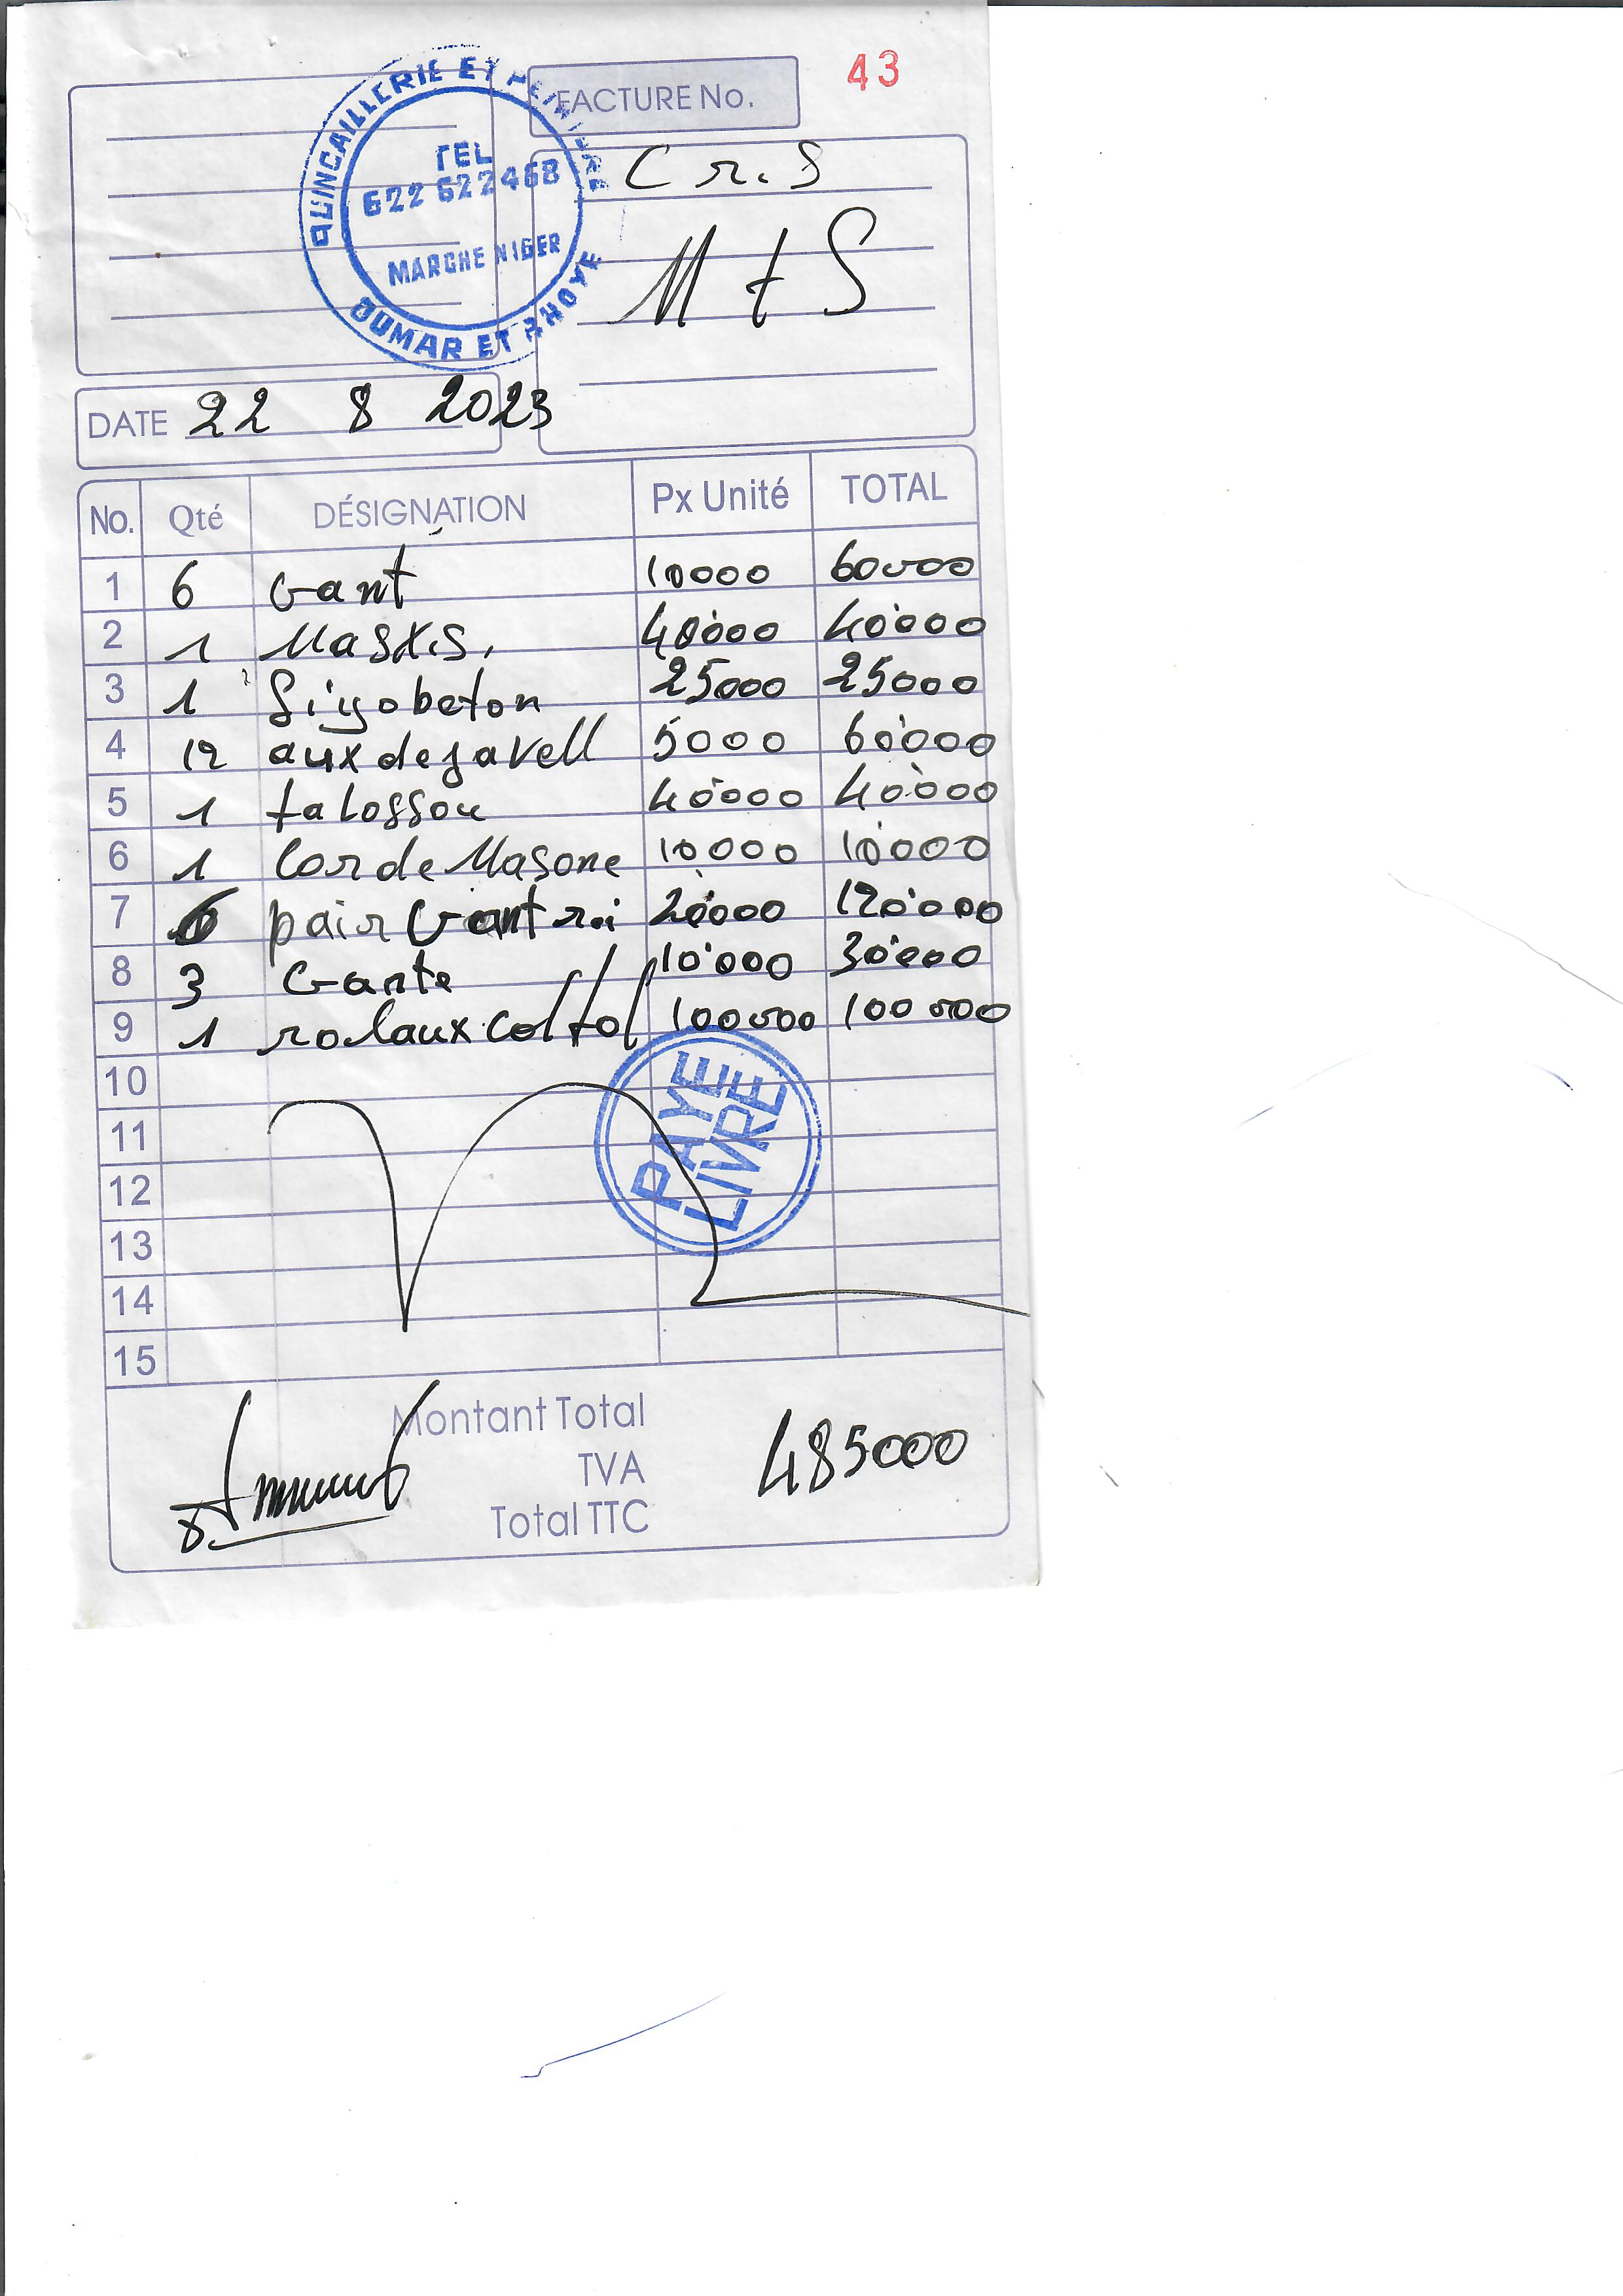 43
FACTURE No.
QUINCAILLERIE ET PEINTURE
TEL
622 622468
MARCHE NIGER
OUMAR ET
Cr.S
M t S
DATE 22 8 2023
No. Qté DÉSIGNATION Px Unité TOTAL
1 6 Gant 10000 60000
2 1 40000 40000
3 1 25000 25000
4 12 aux de javell 5000 60000
5 1 40000 40000
6 1 Corde Masone 10000 10000
7 6 pair Gant 20000 120'000
8 3 Gante 10'000 30'000
9 1 rolaux 100000 100 000
10
11
12
13
14
15
PAYE
LIVRE
Montant Total
TVA
Total TTC
485000